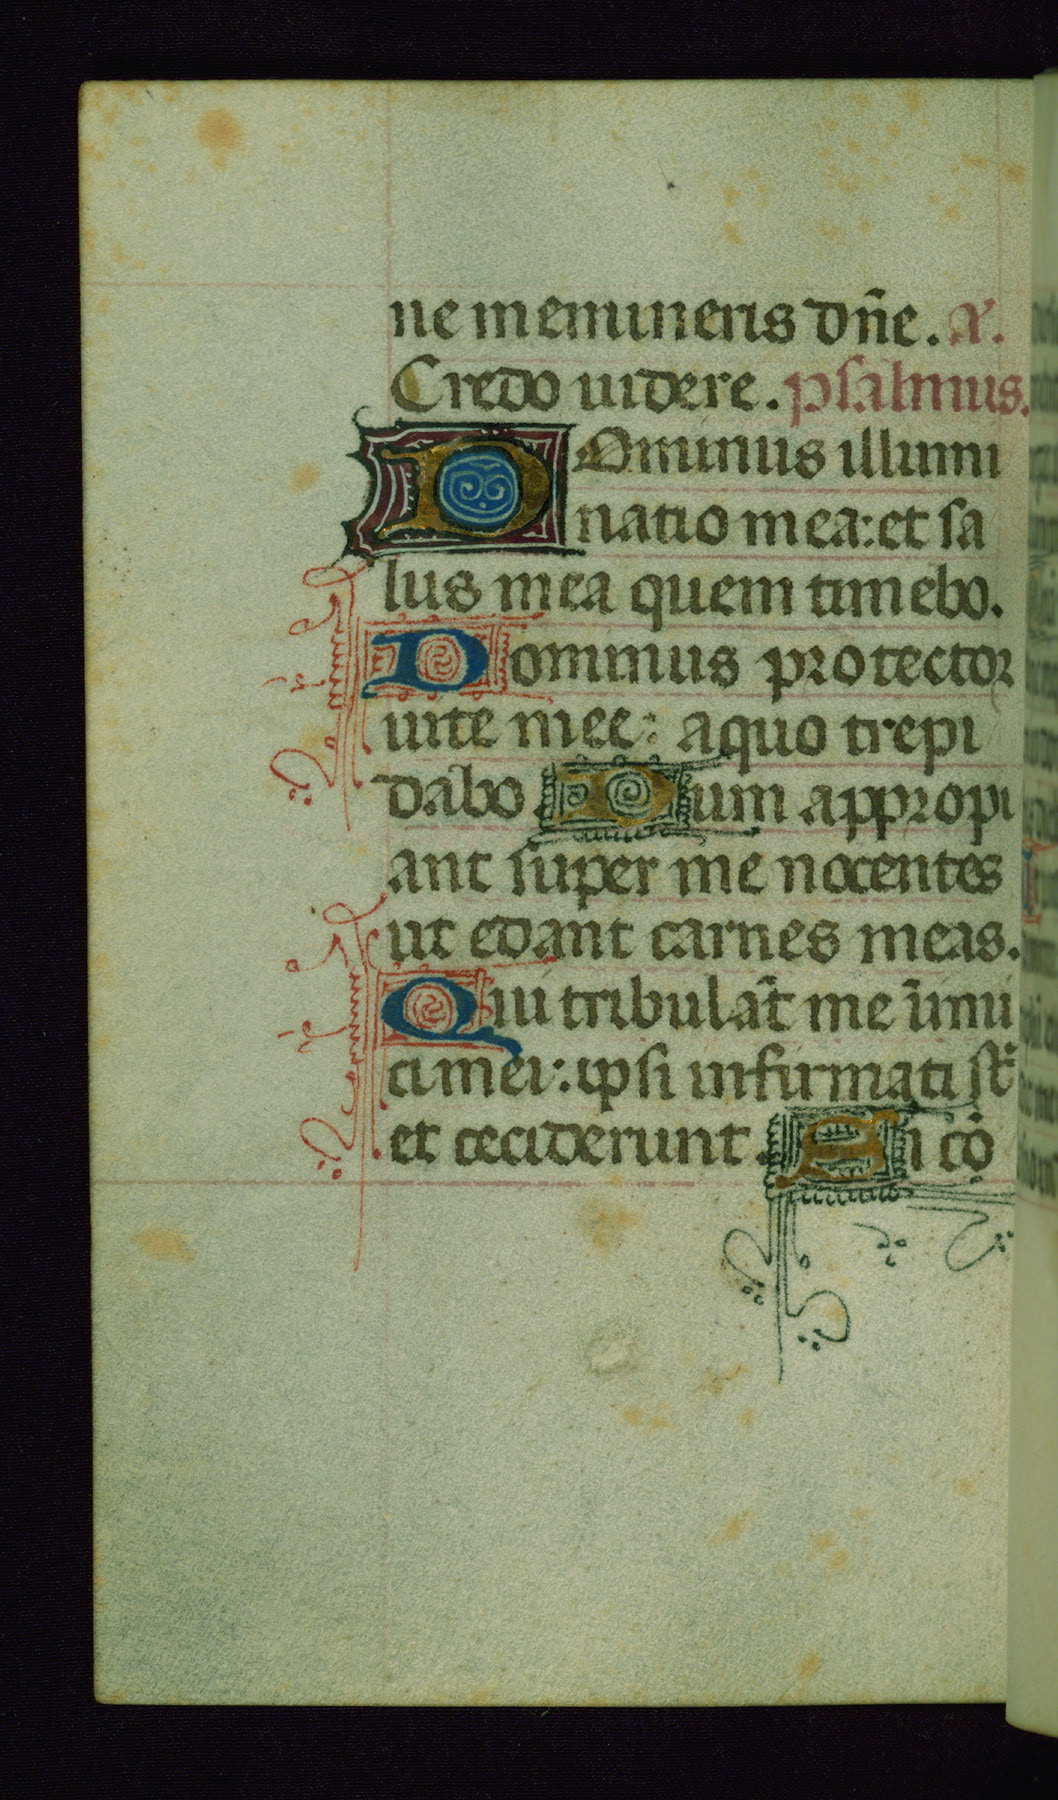 ne memineris dñe. A.
Credo uidere. psalmus.
DOminus illumi
natio mea: et sa
lus mea quem timebo.
Dominus protector
uite mee: aquo trepi
dabo Dum appropi
ant super me nocentes
ut edant carnes meas.
Qui tribulãt me inimi
ci mei: ipsi infirmati st̃
et ceciderunt. Si cõ